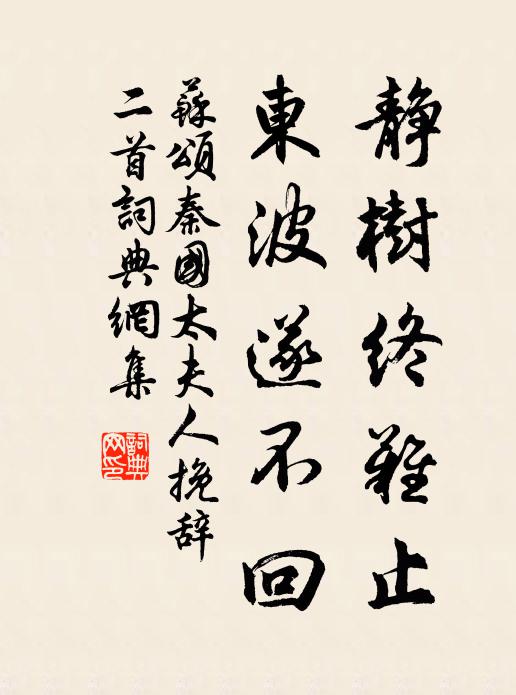 靜樹終難止
東波遂不回
蘇頌秦國太夫人挽辞
二首詞典網集
詞典
网印